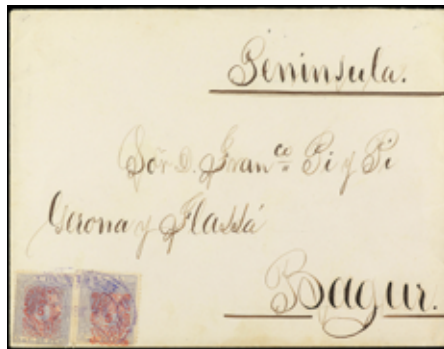 Peninsula.
Sór D. Franco Pi y Pi
Gerona y Flassá
Bagur.